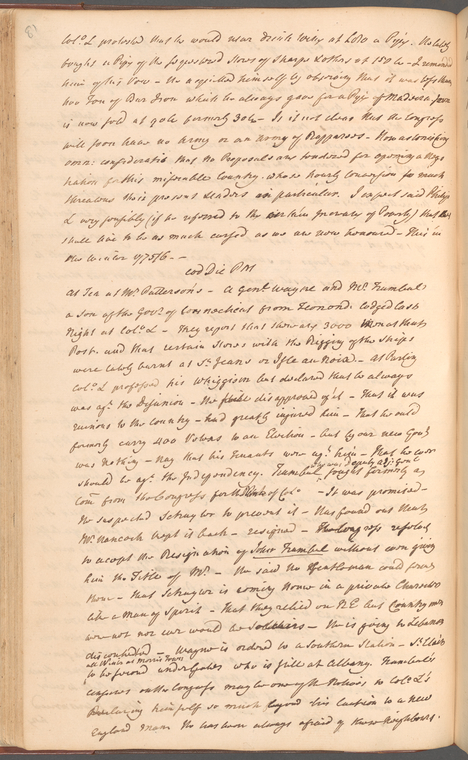 Col.º L protested that he would never drink Wine at £210 a Pipe. He lately
bought a Pipe of the sequestered Stores of Sharpe & others at 150 £ - I reminded
him of his Vow - He acquitted himself by observing that it was less than
two Ton of Bar Iron which he always gave for a Pipe of Madeira Iron
is now sold at 90 £ formerly 30 £ - Is it not clear that the Congress
will soon have no Army or an Army of Rapparees - How astonishing
omn: consideratis that no Proposals are tendered for opening a Nego
tiation for this miserable Country. whose hourly Conversion so much
threatens their present Leaders in particular. I expect said Philip
L very sensibly (if he referred to the certain Increase of Poverty) that we
shall live to be as much cursed as we are now honoured - This in
the Winter 1775/6 -
eod Die PM
At Tea at Mr. Patterson's - A Gen.l Wayne and Mr. Trumbal
a son of the Gov.r of Connecticut from Ticonderoga lodged last
Night at Col.º L - They report that there are 3000 Men at that
Post. and that certain Stores with the Rigging of the Ships
were lately burnt at St. Jeans or Isle au Noix. - At Parting
Col.º L professed his Whiggism but declared that he always
was ag.t the Disunion - He still disapproved of it - That it was
ruinous to the Country - had greatly injured him - That he could
formerly carry 400 Votes to an Election - but by our new Gov.t
was Nothing - nay that his Tenants were ag.t him - That he ever
should be ag.t the Independency. Trumbal fought formerly as
was deputy adj.t Gen.l
Com. from the Congress for the Rank of Col.º - It was promised -
He suspected Schuyler to prevent it - Has found out that
Mr. Hancock kept it back - resigned - The Congress refused
to accept the Resignation of John Trumbal without even giving
him the Title of Mr. - He said no Gentleman could serve
them - that Schuyler is coming Home in a private Character
like a Man of Spirit - That they relied on N E but Country men
were not nor ever would be Soldiers - He is going to Lebanon
discontented - Wayne is ordered to a Southern Station - St. Clair
all Winter at Morris Town
to be found under Gates who is still at Albany. Trumbal's
censures on the Congress may be one of the Motives to Col.º L's
declaring himself so much beyond his Caution to a New
England Man He has been always afraid of those Neighbours.